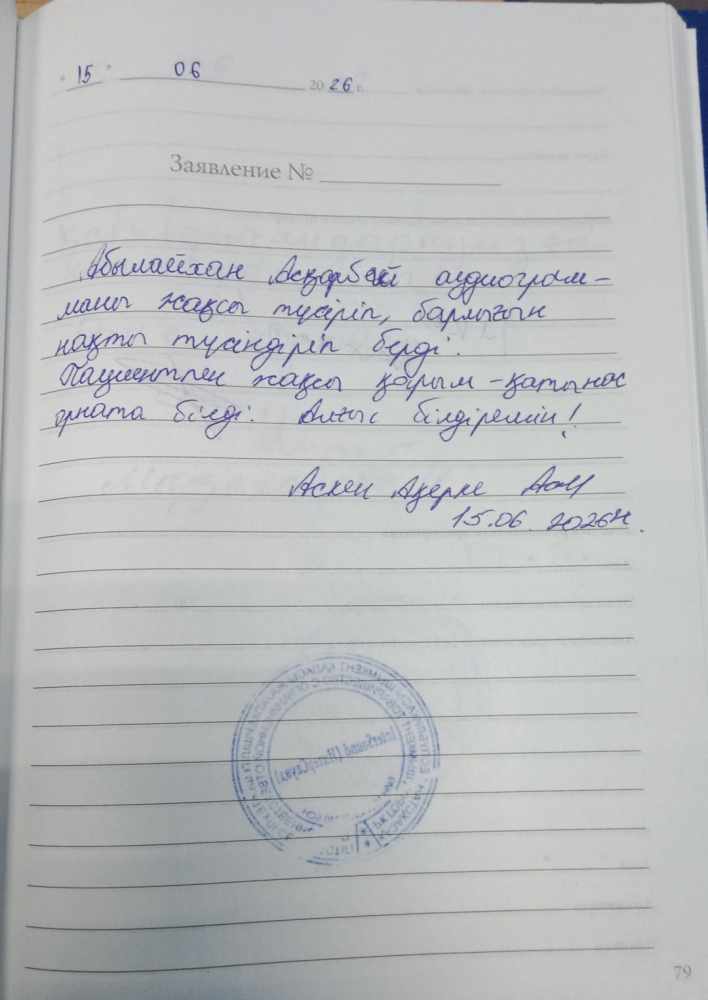 " 15 " 06 20 26 г.
Заявление № 
Абылайхан Асқарбай аудиограм-
маны жақсы түсіріп, барлығын
нақты түсіндіріп берді.
Пациентпен жақсы қарым-қатынас
орната білді. Алғыс білдіремін!
Аскен Ақерке
15.06.2026ж.
79